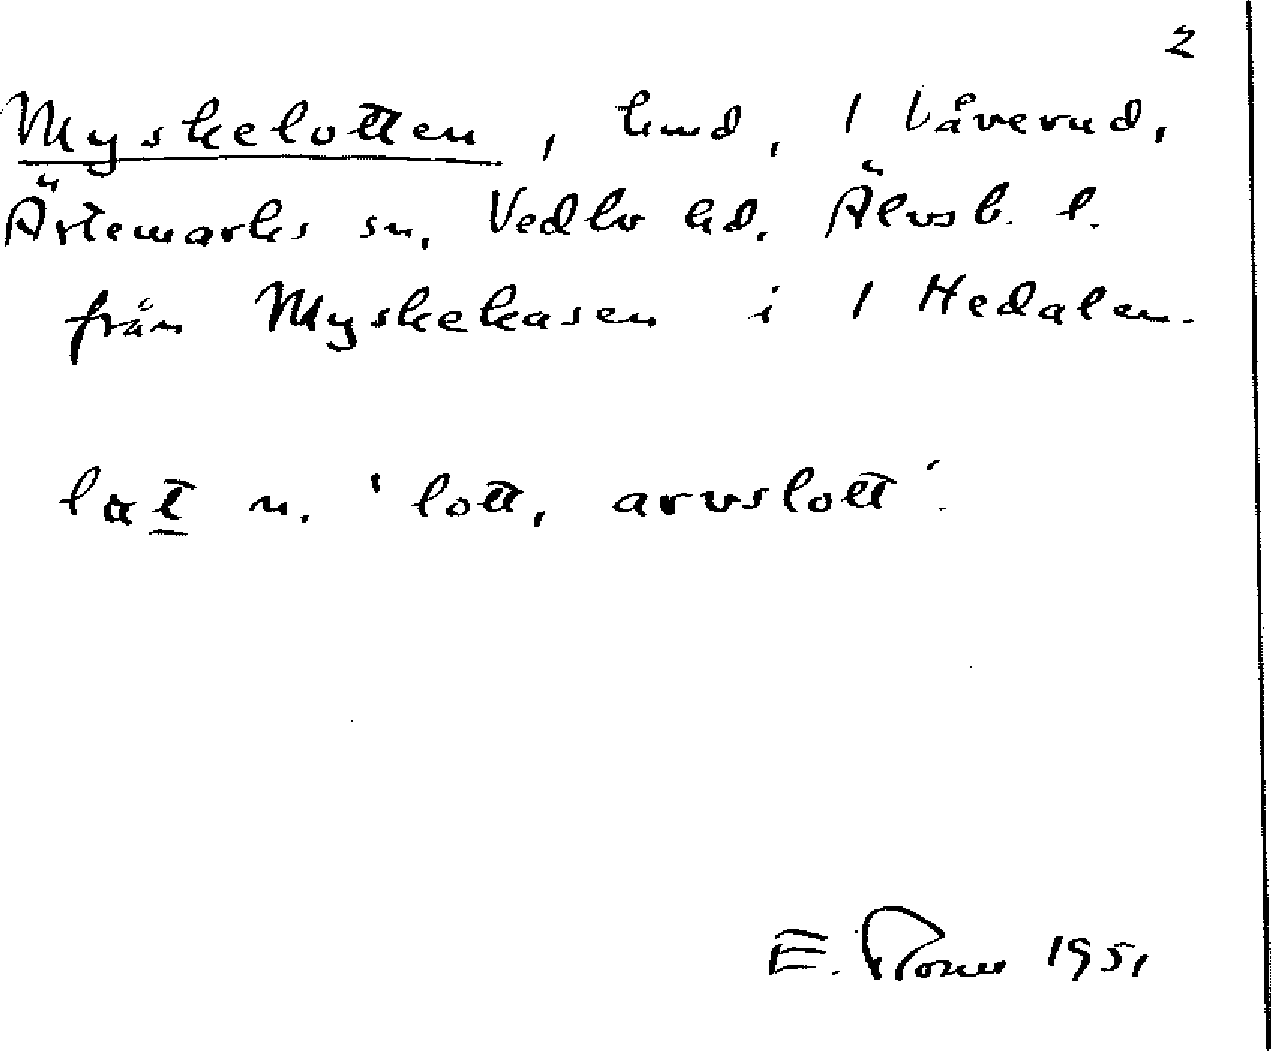 2
Myskelotten, hmd, 1 Låverud,
Ärtemarks sn, Vedbo hd, Älvsb. l.
från Myskekasen i 1 Hedalen.
lɑt n. 'lott, arvslott'.
E. 1951